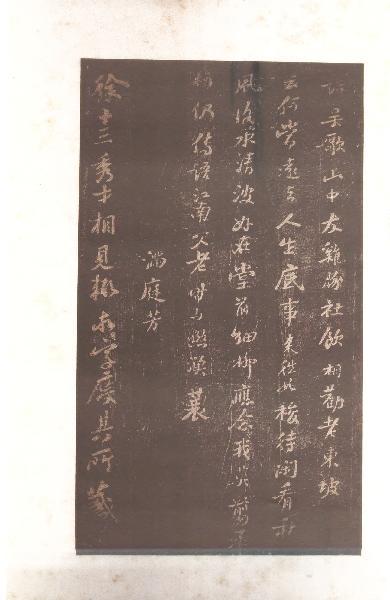 吴歌山中友雞豚社飲相勸老東坡
云何當遠去人生底事來往如梭待閑看秋
風洛水清波好在堂前細柳應念我莫剪柔
柯仍傳語江南父老時与曬漁蓑
滿庭芳
徐十三秀才相見求其所